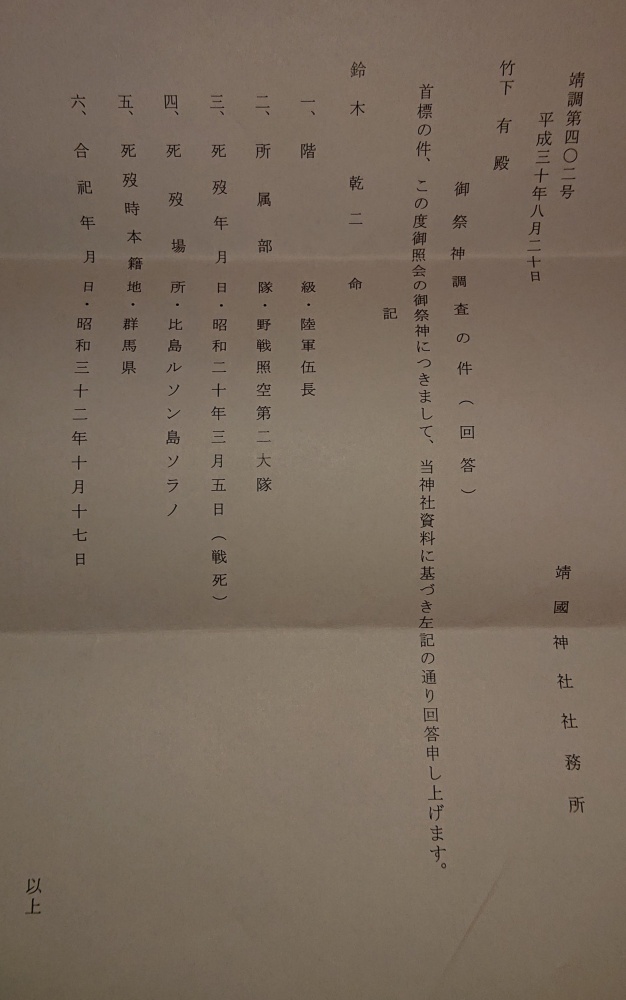 靖調第四〇二号
平成三十年八月二十日
靖國神社社務所
竹下有殿
御祭神調査の件（回答）
首標の件、この度御照会の御祭神につきまして、当神社資料に基づき左記の通り回答申し上げます。
記
鈴木乾二命
一、階級・陸軍伍長
二、所属部隊・野戦照空第二大隊
三、死歿年月日・昭和二十年三月五日（戦死）
四、死歿場所・比島ルソン島ソラノ
五、死歿時本籍地・群馬県
六、合祀年月日・昭和三十二年十月十七日
以上